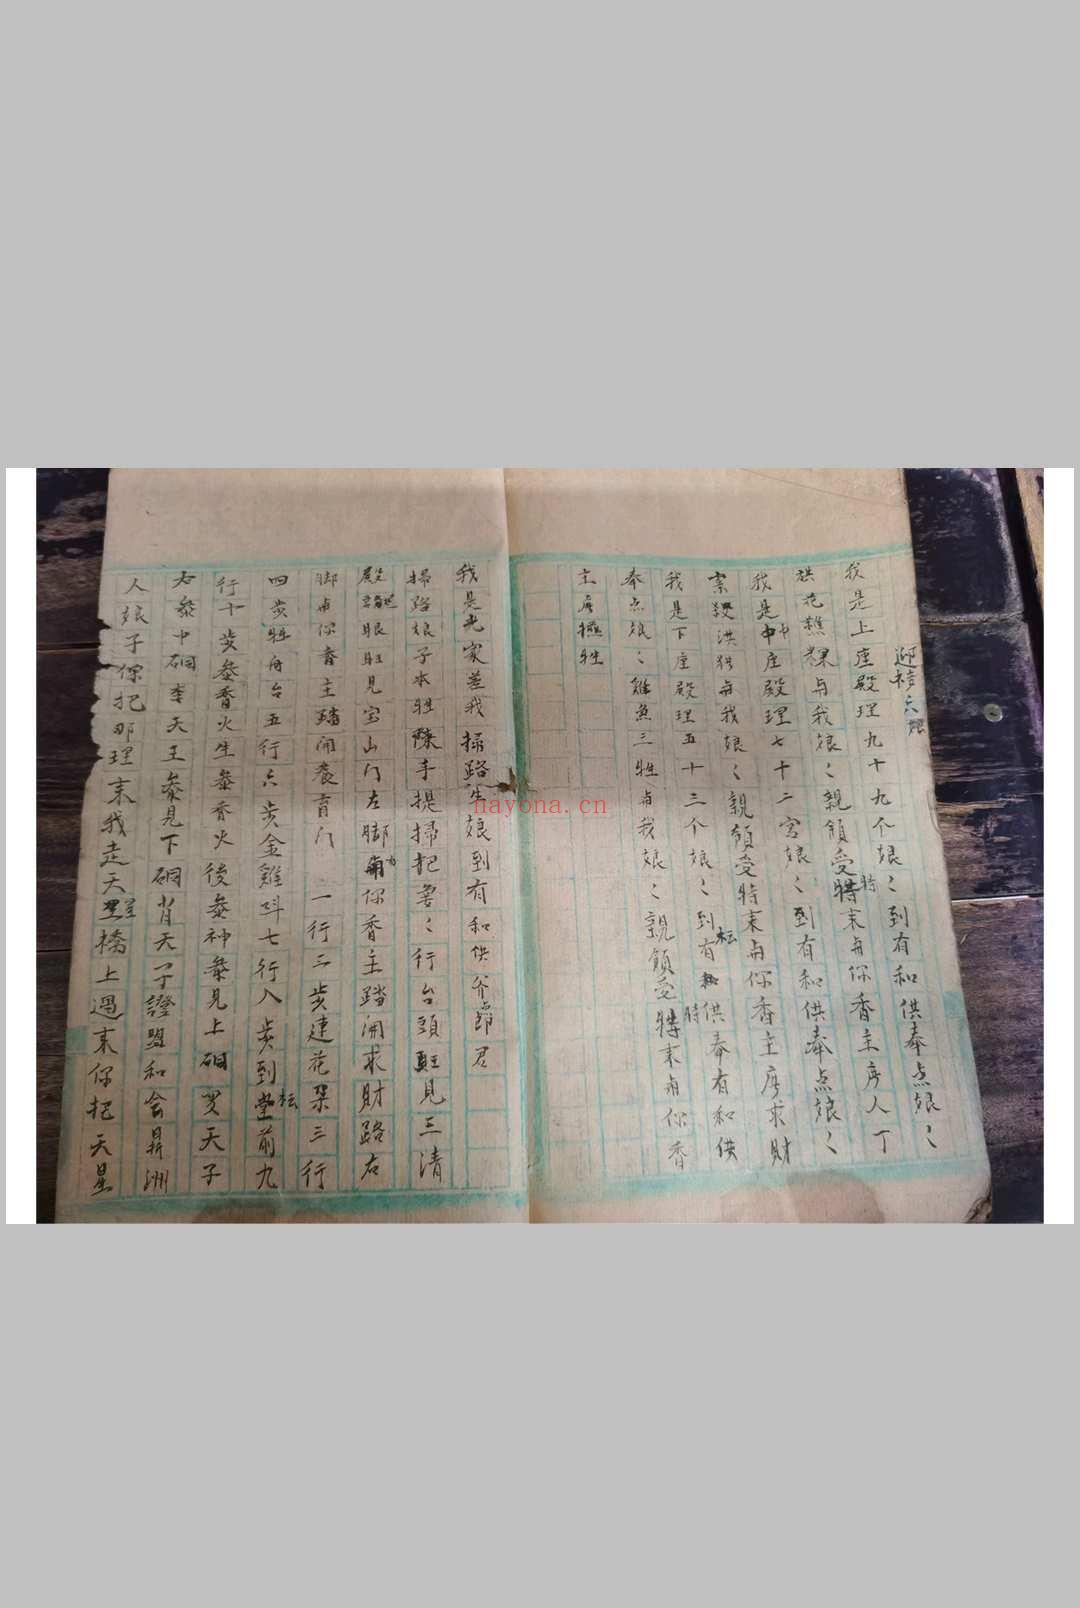 迎桔六娘
我是上座殿理九十九个娘〻到有和供奉点娘〻
洪花樵粿与我娘〻親領受特時末与你香主序人丁
我是中中座殿理七十二宮娘〻到有和供奉点娘〻
案殺洪猪与我娘〻親領受特末与你香主序求財
我是下座殿理五十三个娘〻到有坛供奉有和供
奉点娘〻雞魚三牲与我娘〻親領受特時末与你香
主序牲
我是光家差我掃路生娘到有和供爷郎君
掃路娘子本牲隊手提掃把〻行台頭旺見三清
殿眼旺見宝山门左脚与你香主踏開求財路右
脚与你香主踏開養育门 一行二步建花朶三行
四步牲舟台五行六步金雞呌七行八步到堂坛前九
行十步叅香火生叅香火後叅神叅見上硐天子
右叅中硐李天王叅見下硐肖天子證盟和会昇洲
人娘子你把那理末我走天星橋上過末你把天星
nayona.cn